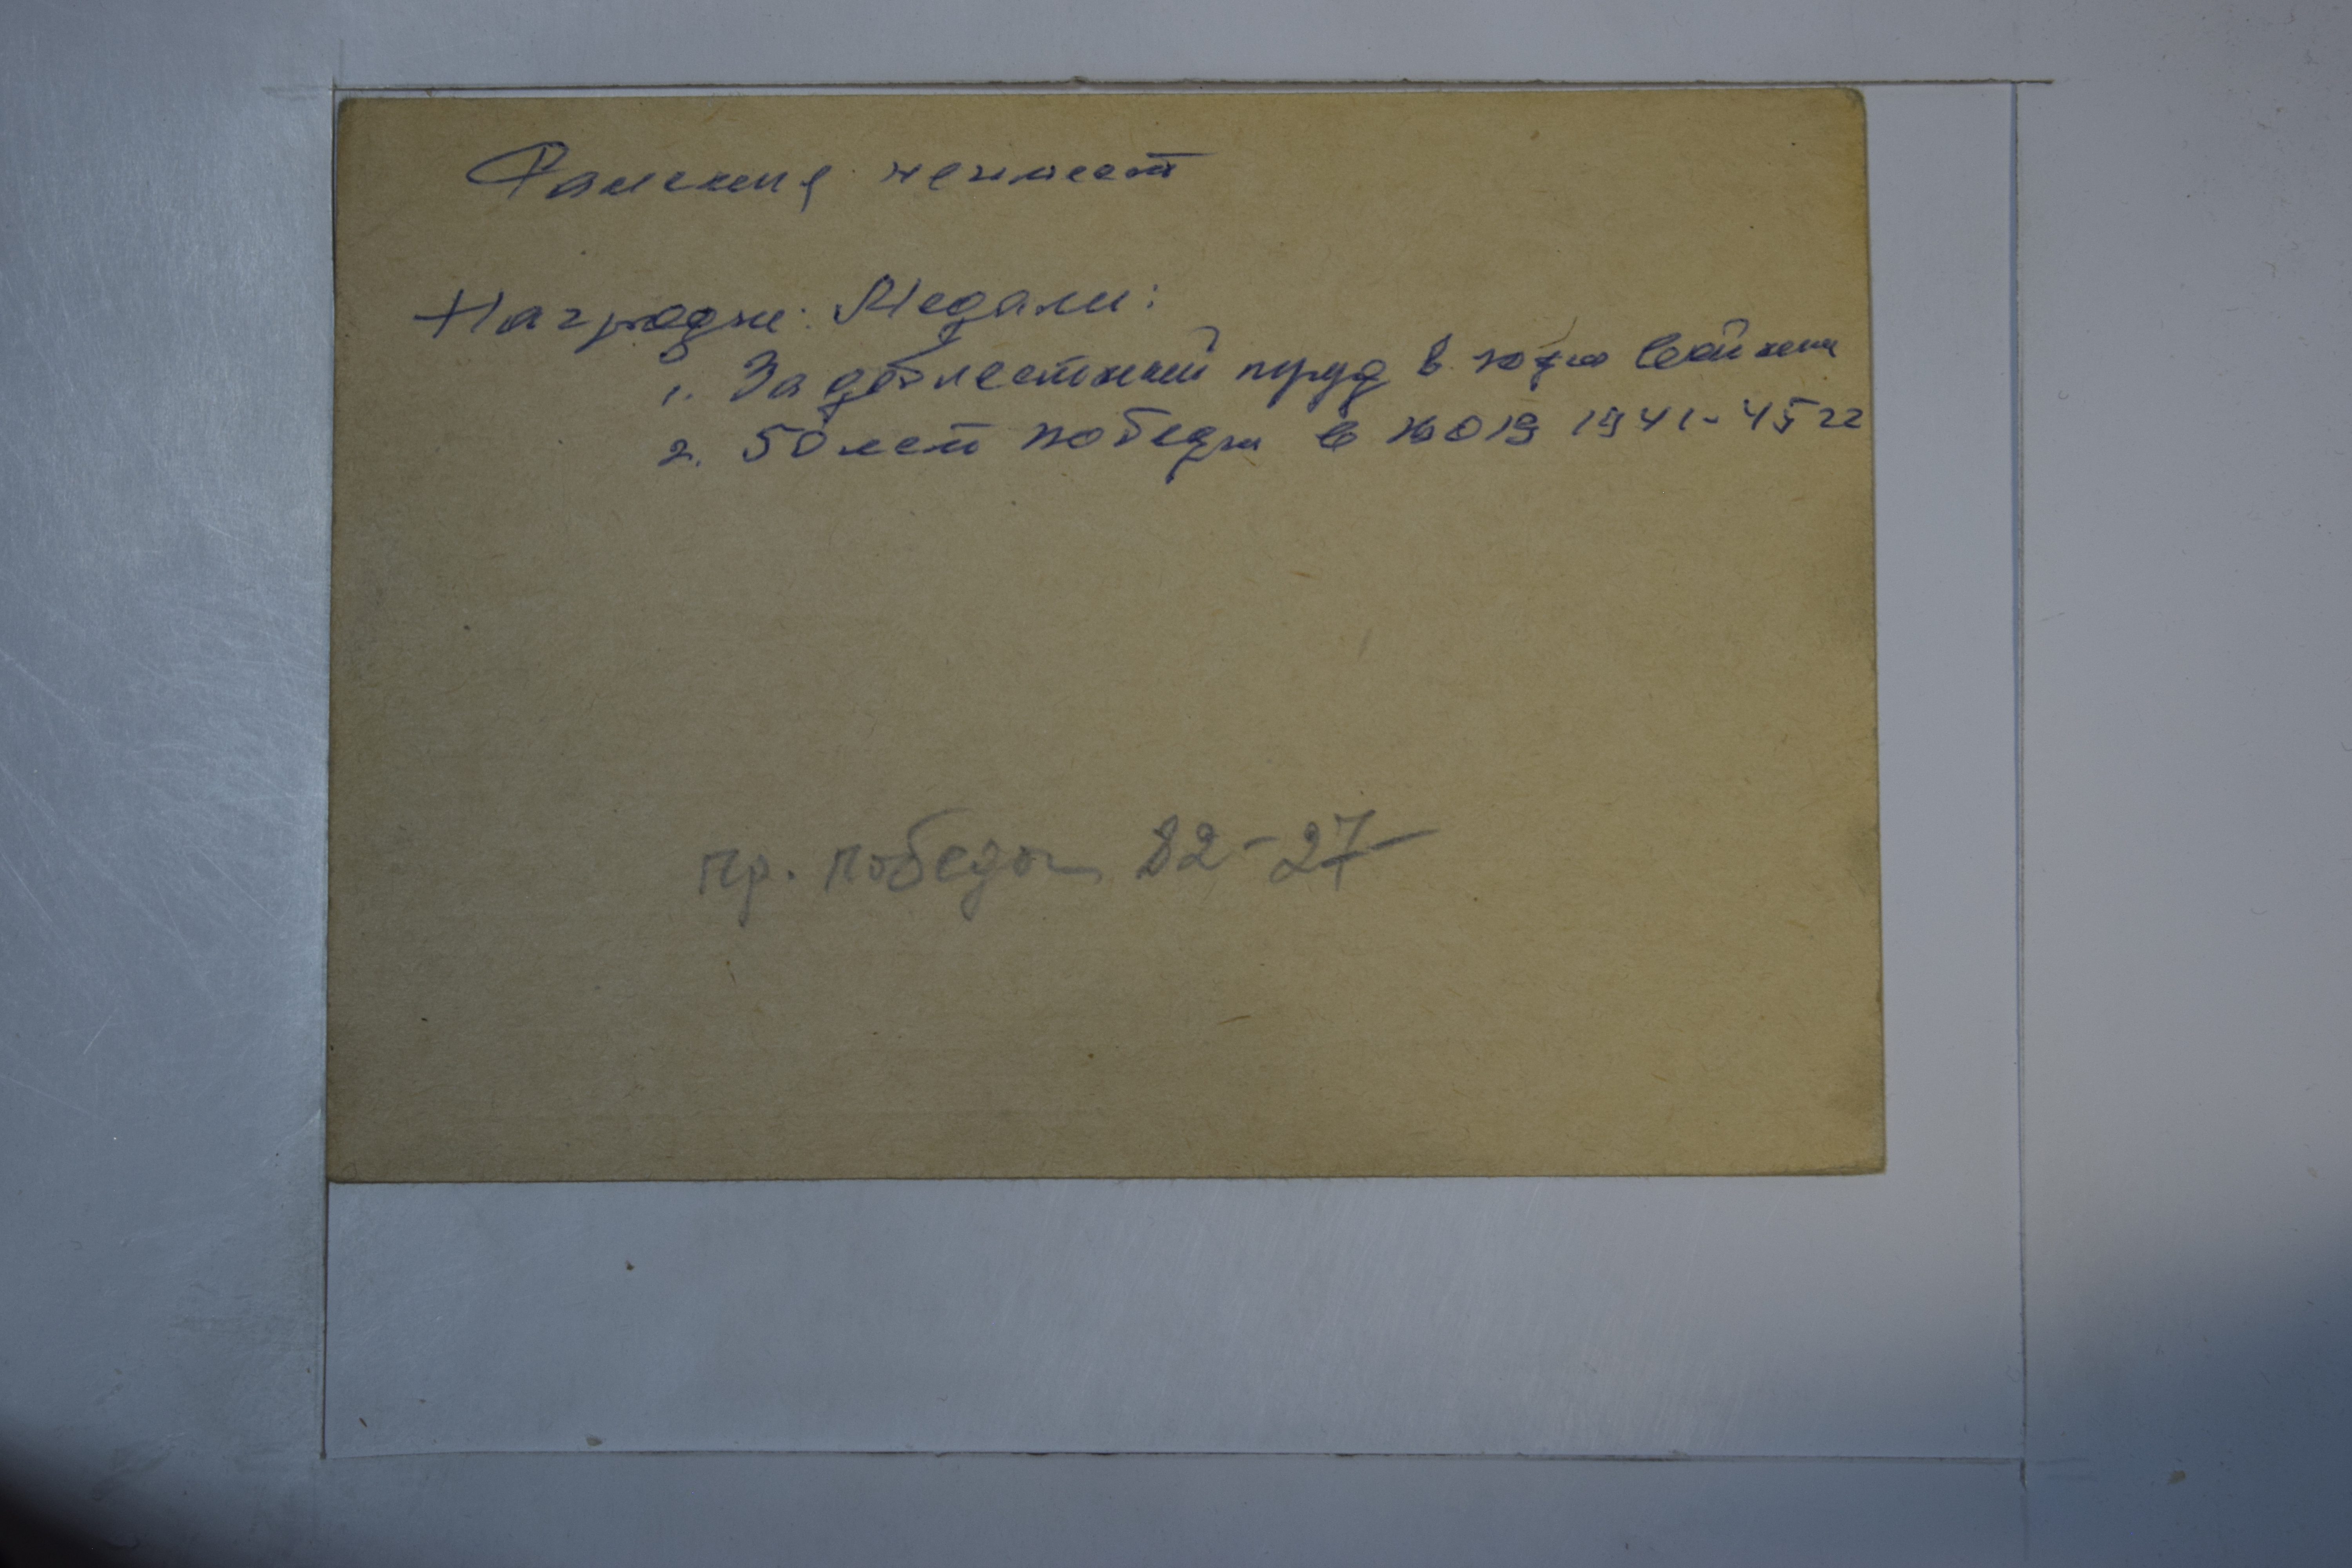 Ранения не имеет
Награды: Медали:
1. За доблестный труд в годы войны
2. 50 лет победы в ВОВ 1941-45 гг
пр. победы 82-27